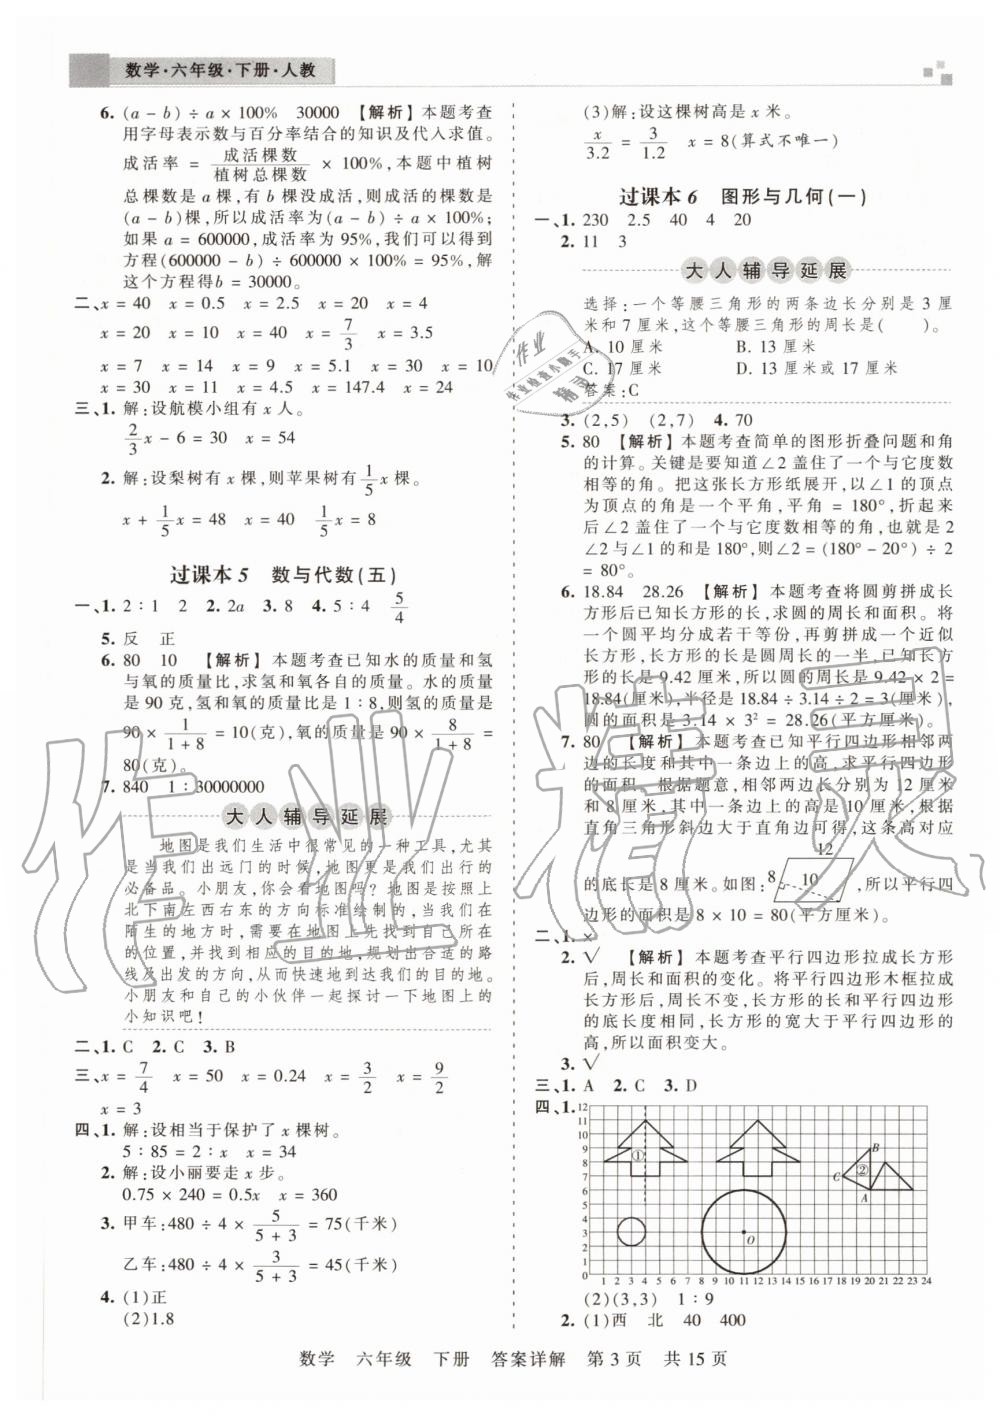 数学·六年级·下册·人教
6. (a－b)÷a×100%　30000　【解析】本题考查
用字母表示数与百分率结合的知识及代入求值。
成活率＝成活棵数/植树总棵数×100%，本题中植树
总棵数是a棵，有b棵没成活，则成活的棵数是
(a－b)棵，所以成活率为(a－b)÷a×100%；
如果a＝600000，成活率为95%，我们可以得到
方程(600000－b)÷600000＝95%，解
这个方程得b＝30000。
二、x＝40　x＝0.5　x＝2.5　x＝20　x＝4
x＝20　x＝10　x＝40　x＝7/3　x＝3.5
x＝7　x＝14　x＝9　x＝5.1　x＝30　x＝10
x＝30　x＝11　x＝4.5　x＝147.4　x＝24
三、1. 解：设航模小组有x人。
2/3x－6＝30　x＝54
2. 解：设梨树有x棵，则苹果树有1/5x棵。
x＋1/5x＝48　x＝40　1/5x＝8
过课本5　数与代数(五)
一、1. 2∶1　2　2. 2a　3. 8　4. 5∶4　5/4
5. 反　正
6. 80　10　【解析】本题考查已知水的质量和氢
与氧的质量比，求氢和氧各自的质量。水的质量
是90克，氢和氧的质量比是1∶8，则氢的质量是
90×1/(1＋8)＝10(克)，氧的质量是90×8/(1＋8)＝
80(克)。
7. 840　1∶30000000
大人辅导延展
地图是我们生活中很常见的一种工具，尤其
是当我们出远门的时候，地图更是我们出行的
必备品。小朋友，你会看地图吗？地图是按照上
北下南左西右东的方向标准绘制的，当我们在
陌生的地方时，需要在地图上先找到自己所在
的位置，并找到相应的目的地，规划出合适的路
线及出发的方向，从而快速地到达我们的目的地。
小朋友和自己的小伙伴一起探讨一下地图上的
小知识吧！
二、1. C　2. C　3. B
三、x＝7/4　x＝50　x＝0.24　x＝3/2　x＝9/2
x＝3
四、1. 解：设相当于保护了x棵树。
5∶85＝2∶x　x＝34
2. 解：设小丽要走x步。
0.75×240＝0.5x　x＝360
3. 甲车：480÷4×5/(5＋3)＝75(千米)
乙车：480÷4×3/(5＋3)＝45(千米)
4. (1)正
(2)1.8
(3)解：设这棵树高是x米。
x/3.2＝3/1.2　x＝8(算式不唯一)
过课本6　图形与几何(一)
一、1. 230　2.5　40　4　20
2. 11　3
大人辅导延展
选择：一个等腰三角形的两条边长分别是3厘
米和7厘米，这个等腰三角形的周长是(　　)。
A. 10厘米　B. 13厘米
C. 17厘米　D. 13厘米或17厘米
答案：C
3. (2,5)　(2,7)　4. 70
5. 80　【解析】本题考查简单的图形折叠问题和角
的计算。关键是要知道∠2盖住了一个与它度数
相等的角。把这张长方形纸展开，以∠1的顶点
为顶点的角是一个平角，平角＝180°，折起来
后∠2盖住了一个与它度数相等的角，也就是2
∠2与∠1的和是180°，则∠2＝(180°－20°)÷2
＝80°。
6. 18.84　28.26　【解析】本题考查将圆剪拼成长
方形后已知长方形的长，求圆的周长和面积。将
一个圆平均分成若干等份，再剪拼成一个近似
长方形，长方形的长是圆周长的一半，已知长方
形的长是9.42厘米，所以圆的周长是9.42×2＝
18.84(厘米)，半径是18.84÷3.14÷2＝3(厘米)，
圆的面积是3.14×3²＝28.26(平方厘米)。
7. 80　【解析】本题考查已知平行四边形相邻两
边的长度和其中一条边上的高，求平行四边形
的面积。根据题意，相邻两边长分别为12厘米
和8厘米，其中一条边上的高是10厘米，根据
直角三角形斜边大于直角边可得，这条高对应
的底长是8厘米。如图：8　10　12，所以平行四
边形的面积是8×10＝80(平方厘米)。
二、1. ×
2. √　【解析】本题考查平行四边形拉成长方形
后，周长和面积的变化。将平行四边形木框拉成
长方形后，周长不变，长方形的长和平行四边形
的底长度相同，长方形的宽大于平行四边形的
高，所以面积变大。
3. √
三、1. A　2. C　3. D
四、1.
12
11
10
9
8
7
6
5
4
3
2
1
0
①
②
B
C
A
O
1 2 3 4 5 6 7 8 9 10 11 12 13 14 15 16 17 18 19 20 21 22 23 24
(2)(3,3)　1∶9
2. (1)西　北　40　400
数学　六年级　下册　答案详解　第3页　共15页
作业精灵